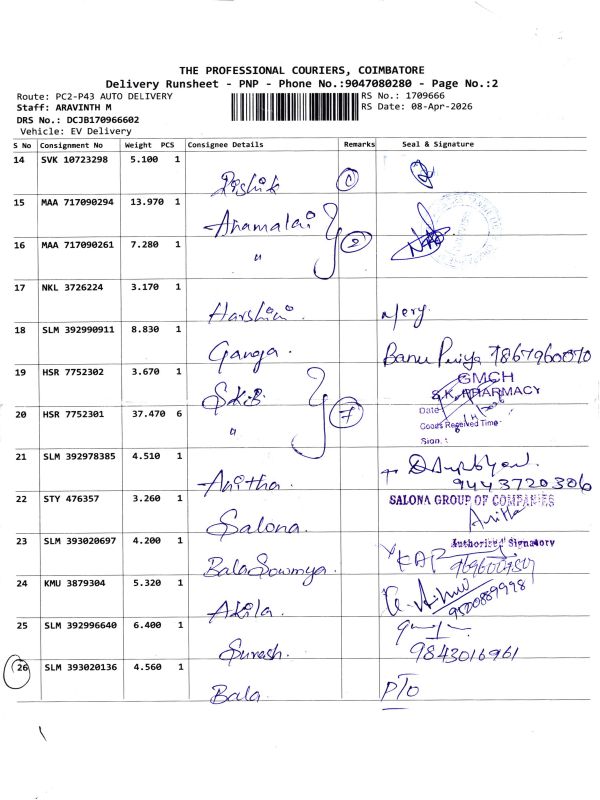 THE PROFESSIONAL COURIERS, COIMBATORE
Delivery Runsheet - PNP - Phone No.:9047080280 - Page No.:2
Route: PC2-P43 AUTO DELIVERY
RS No.: 1709666
Staff: ARAVINTH M
RS Date: 08-Apr-2026
DRS No.: DCJB170966602
Vehicle: EV Delivery
S No Consignment No Weight PCS Consignee Details Remarks Seal & Signature
14 SVK 10723298 5.100 1
Rishik
15 MAA 717090294 13.970 1
Anamalai
16 MAA 717090261 7.280 1 2
"
17 NKL 3726224 3.170 1
Harshini
18 SLM 392990911 8.830 1
Ganga. Banu Priya 7867960070
19 HSR 7752302 3.670 1 GMCH
S.K.B. S.K. PHARMACY
20 HSR 7752301 37.470 6 7 Date
" Goods Received Time
Sign. :
21 SLM 392978385 4.510 1
Anitha. 9443720306
22 STY 476357 3.260 1 SALONA GROUP OF COMPANIES
Salona. Anitha
23 SLM 393020697 4.200 1 Authorised Signatory
Bala Sowmya. KAP
24 KMU 3879304 5.320 1
Akila. 9500889998
25 SLM 392996640 6.400 1
Suresh. 9843016961
26 SLM 393020136 4.560 1
Bala. PTO